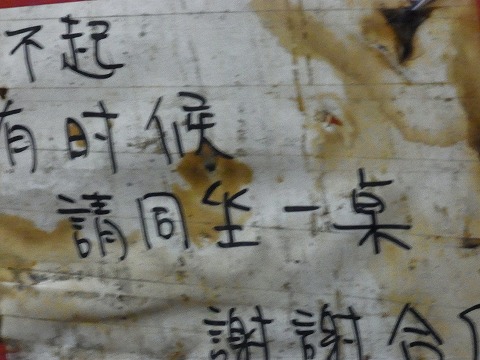 不起
有时候
請同坐一桌
謝謝合